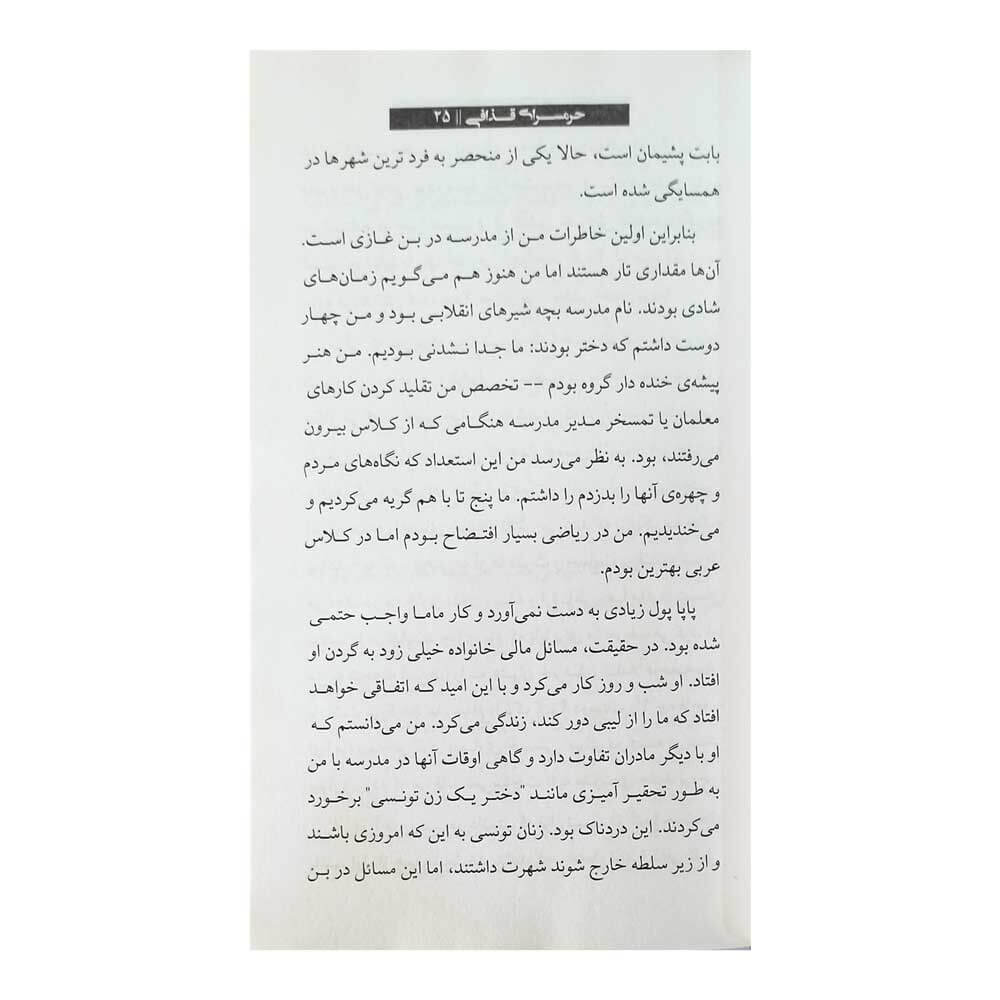 حرمسرای قذافی || ۲۵
بابت پشیمان است، حالا یکی از منحصر به فرد ترین شهرها در
همسایگی شده است.
بنابراین اولین خاطرات من از مدرسه در بن غازی است.
آن‌ها مقداری تار هستند اما من هنوز هم می‌گویم زمان‌های
شادی بودند. نام مدرسه بچه شیرهای انقلابی بود و من چهار
دوست داشتم که دختر بودند: ما جدا نشدنی بودیم. من هنر
پیشه‌ی خنده دار گروه بودم -- تخصص من تقلید کردن کارهای
معلمان یا تمسخر مدیر مدرسه هنگامی که از کلاس بیرون
می‌رفتند، بود. به نظر می‌رسد من این استعداد که نگاه‌های مردم
و چهره‌ی آنها را بدزدم را داشتم. ما پنج تا با هم گریه می‌کردیم و
می‌خندیدیم. من در ریاضی بسیار افتضاح بودم اما در کلاس
عربی بهترین بودم.
پاپا پول زیادی به دست نمی‌آورد و کار ماما واجب حتمی
شده بود. در حقیقت، مسائل مالی خانواده خیلی زود به گردن او
افتاد. او شب و روز کار می‌کرد و با این امید که اتفاقی خواهد
افتاد که ما را از لیبی دور کند، زندگی می‌کرد. من می‌دانستم که
او با دیگر مادران تفاوت دارد و گاهی اوقات آنها در مدرسه با من
به طور تحقیر آمیزی مانند "دختر یک زن تونسی" برخورد
می‌کردند. این دردناک بود. زنان تونسی به این که امروزی باشند
و از زیر سلطه خارج شوند شهرت داشتند، اما این مسائل در بن